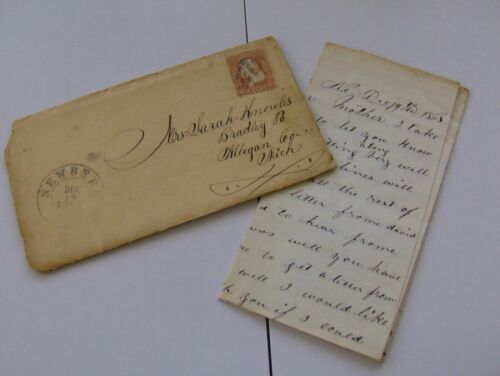 Mrs Sarah Knowles
Bradley PO
Allegan Co..
Mich
NEWBER
DEC
Dec 19th 1863
Mother I take
to let you know
along
thing very well
lines will
all the rest of
letter frome david
d to hear frome
was well you have
to get a letter from
well I would like
you if I could